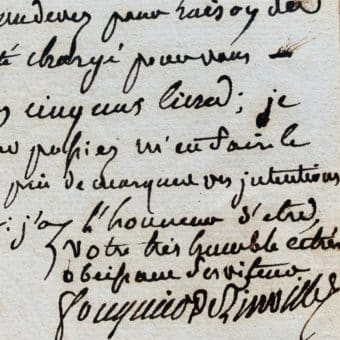 pour raison de
té chargé pour vous
cinq cens livres; je
pussiez m'en faire le
prie de marquer vos intentions
j'ay l'honneur d'etre,
votre très humble et très
obeissant serviteur
Fouquier de Tinville